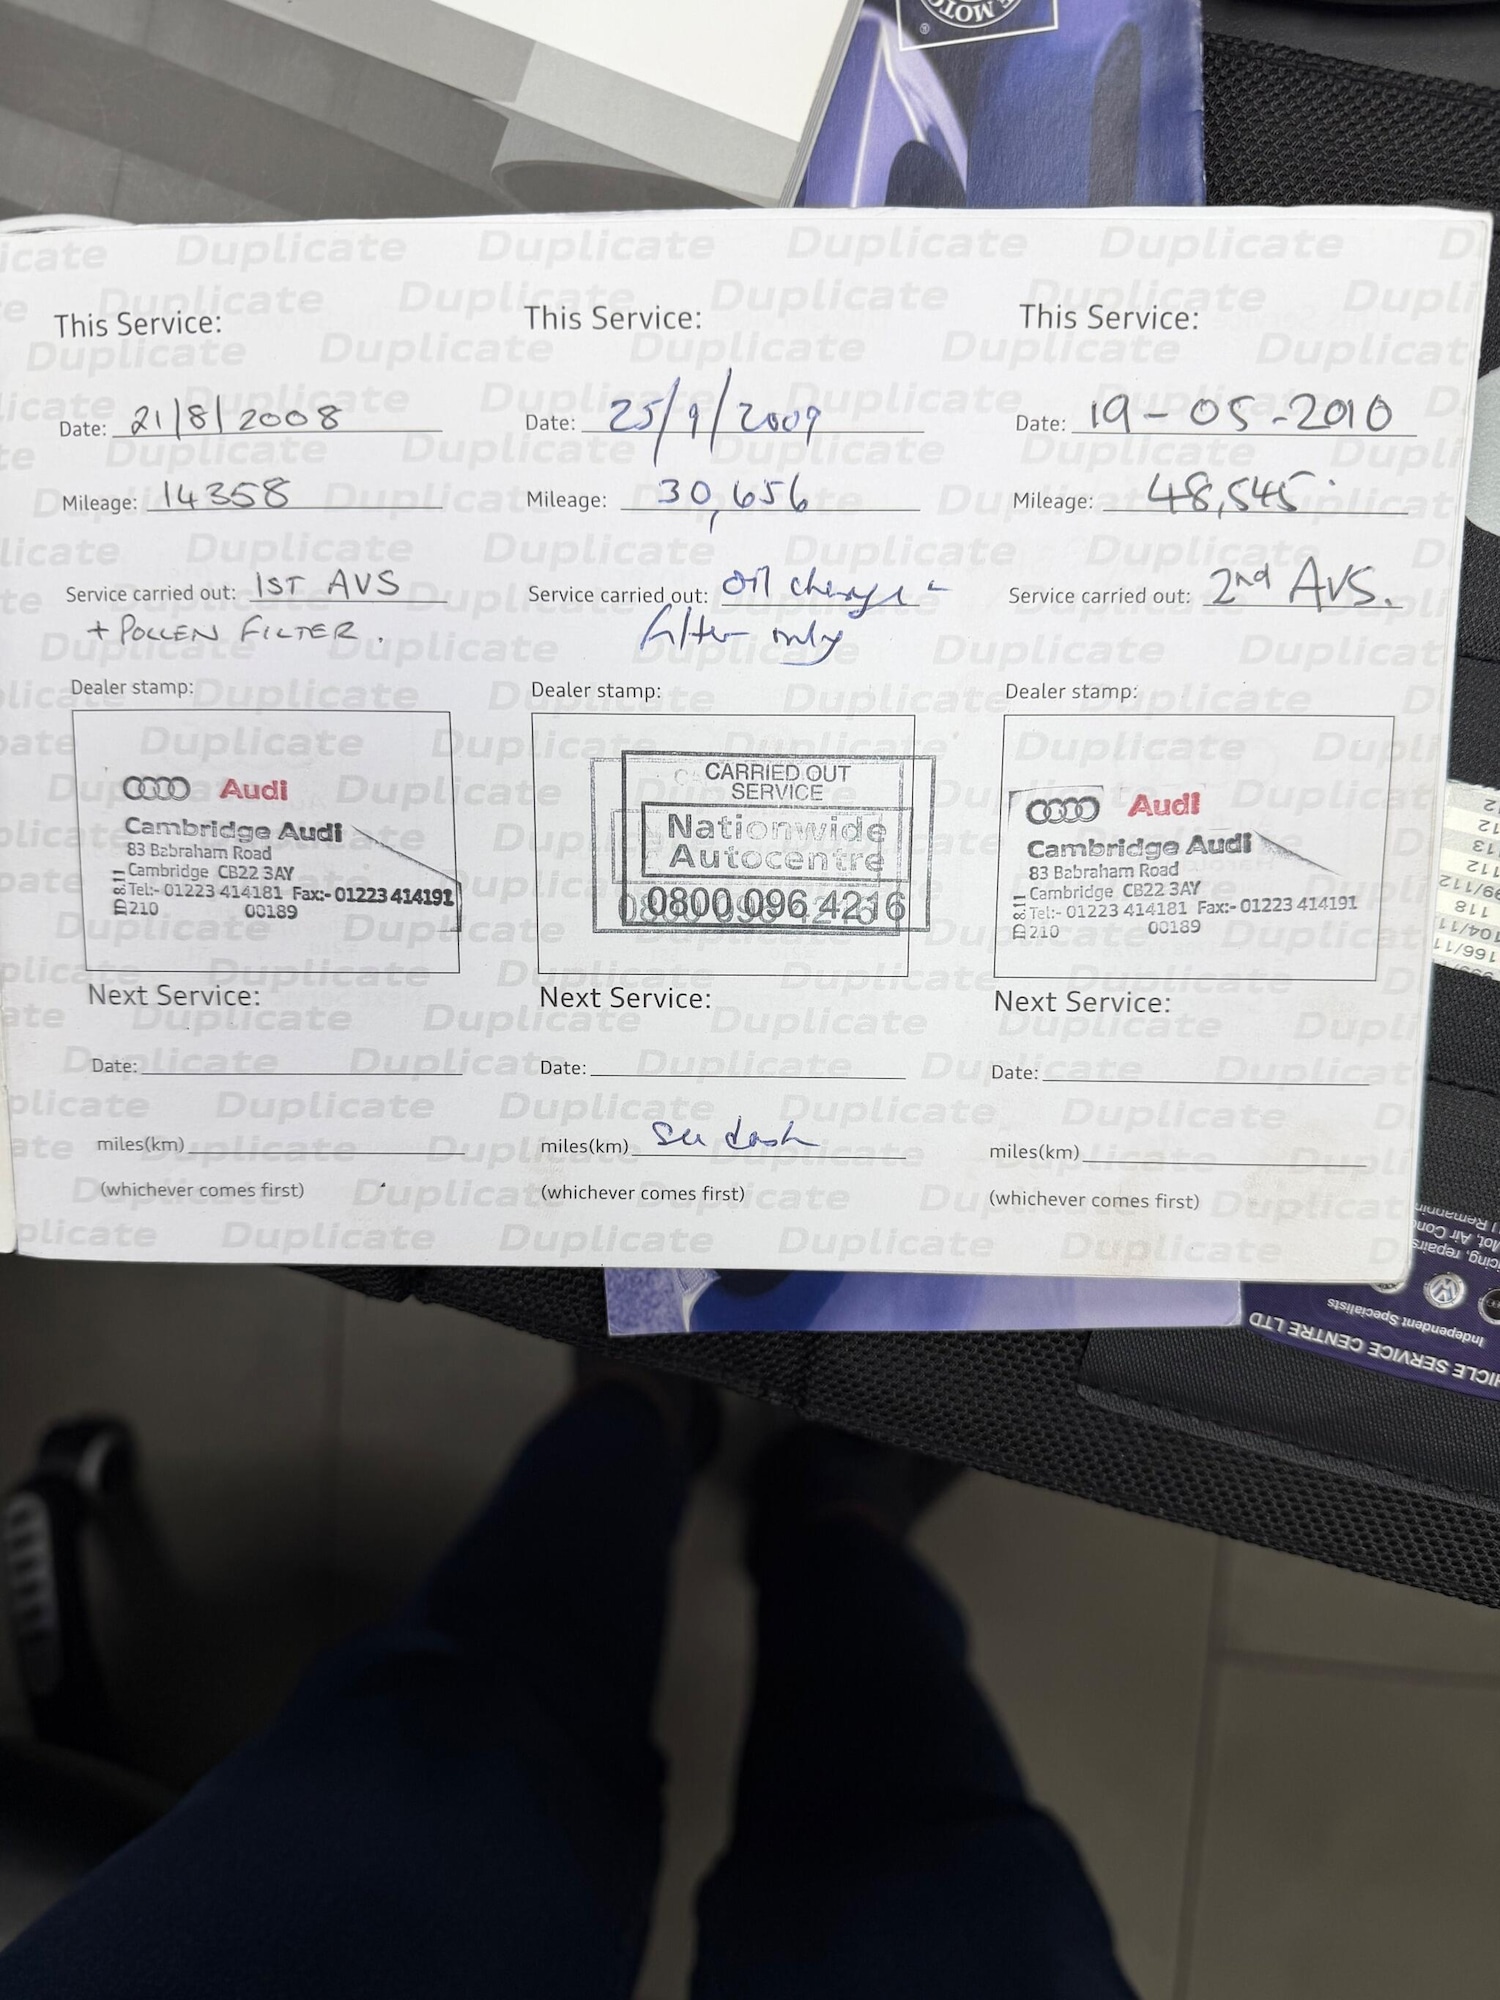 MOTO
®
Duplicate Duplicate Duplicate Duplicate
This Service:
Date: 21/8/2008
Mileage: 14358
Service carried out: 1ST AVS
+ POLLEN FILTER.
Dealer stamp:
Audi
Cambridge Audi
83 Babraham Road
Cambridge CB22 3AY
Tel:- 01223 414181 Fax:- 01223 414191
210 00189
Next Service:
Date:
miles(km)
(whichever comes first)
This Service:
Date: 25/9/2009
Mileage: 30,656
Service carried out: oil change
filter only
Dealer stamp:
CARRIED OUT
SERVICE
Nationwide
Autocentre
0800 096 4216
Next Service:
Date:
miles(km) See dash
(whichever comes first)
This Service:
Date: 19-05-2010
Mileage: 48,545
Service carried out: 2nd AVS.
Dealer stamp:
Audi
Cambridge Audi
83 Babraham Road
Cambridge CB22 3AY
Tel:- 01223 414181 Fax:- 01223 414191
210 00189
Next Service:
Date:
miles(km)
(whichever comes first)
VEHICLE SERVICE CENTRE LTD
Independent Specialists